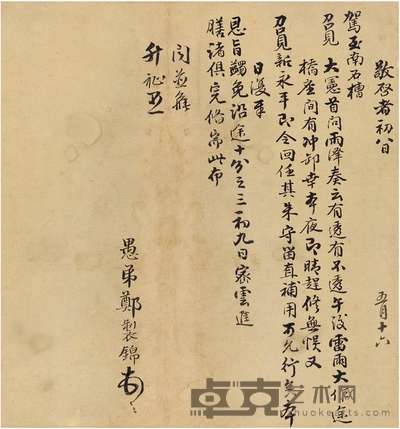 敬啓者初八日
駕至南石槽
召見大憲首問雨澤奏云有透有不透午後雷雨大作途
橋座間有冲卸幸本夜即晴趕修無悞又
召見新永平即令回任其朱守留直補用可允行矣本
日復奉
恩旨蠲免沿途十分之三初九日密雲進
膳諸俱完備耑此布
聞並候
升祉不一
愚弟鄭製錦
五月十六
卓克艺术网